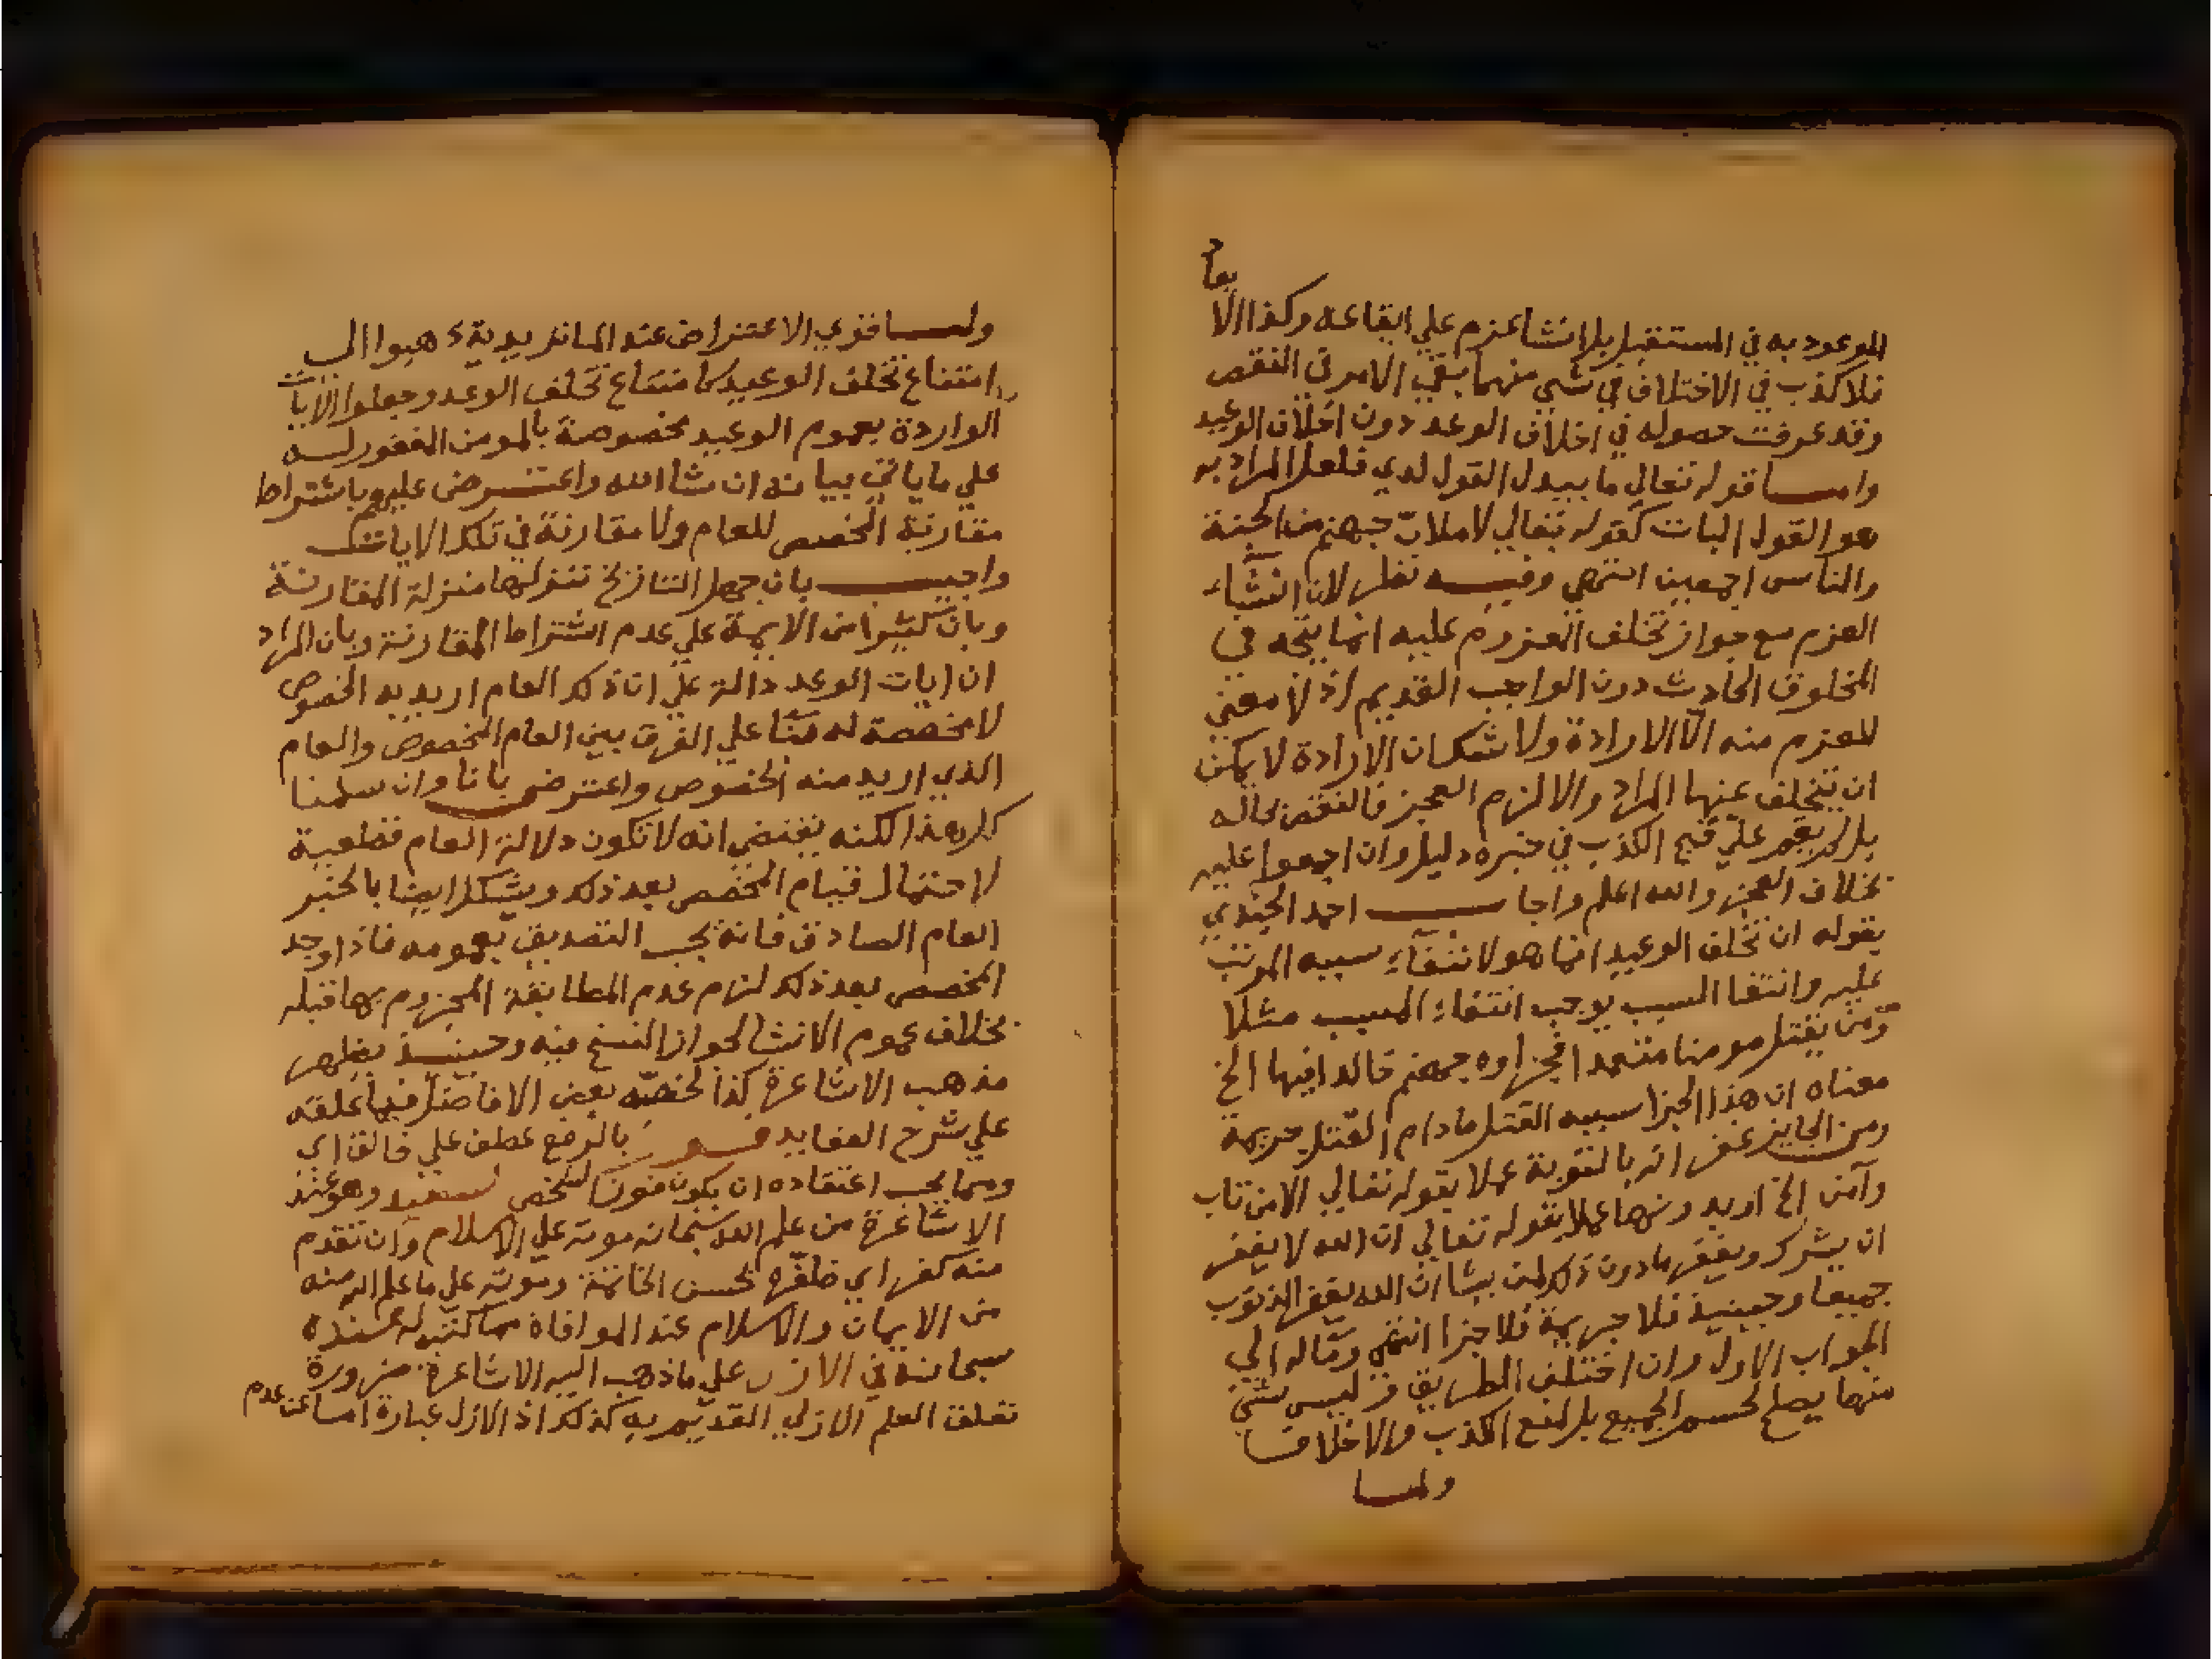 الموعود به في المستقبل بل انشا عزم علي ايقاعه وكذا الايعاد
فلا كذب في الاختلاف في شي منهما بقي الامر في النقص
وقد عرفت حصوله في اخلاف الوعد دون اخلاف الوعيد
وامـا قوله تعالي ما يبدل القول لدي فلعل المراد به
هو القول البات كقوله تعالي لاملان جهنم من الجنة
والناس اجمعين انتهي وفيـه نظر لان انشاء
العزم مع جواز تخلف المعزوم عليه انما يتجه في
المخلوق الحادث دون الواجب القديم اذ لا معني
للعزم منه الا الارادة ولا شك ان الارادة لا يمكن
ان يتخلف عنها المراد والا لزم العجز فالنقص بحاله
بل لم يقم علي قبح الكذب في خبره دليل وان اجمعوا عليه
بخلاف العجز والله اعلم واجاب احمد الجندي
بقوله ان تخلف الوعيد انما هو لانتفاء سببه المرتب
عليه وانتفا السبب يوجب انتفاء المسبب مثلا
ومن يقتل مومنا متعمدا فجزاوه جهنم خالدا فيها الخ
معناه ان هذا الجزا سببه القتل ما دام القتل جريمة
ومن الجايز غفرانه بالتوبة عملا بقوله تعالي الا من تاب
وآمن الخ اوبدونها عملا بقوله تعالي ان الله لا يغفر
ان يشرك ويغفر ما دون ذلك لمن يشا ان الله يغفر الذنوب
جميعا وحينيذ فلا جريمة فلا جزا انتهي ومآله الي
الجواب الاول وان اختلف الطريق وليس شي
منهما يصلح لحسم الجميع بل لمنع الكذب والاخلاف
ولمـا
ولمـا قوي الاعتراض عند الماتريدية ذهبوا الي
امتناع تخلف الوعيد كامتناع تخلف الوعد وجعلوا الايات
الواردة بعموم الوعيد مخصوصة بالمومن المغفور له
علي ما ياتي بيانه ان شا الله واعترض عليهم باشتراط
مقارنة المخصص للعام ولا مقارنة في تلك الايات
واجيب بان جهل التاريخ تنزلها منزلة المقارنة
وبان كثيرا من الايمة علي عدم اشتراط المقارنة وبان المراد
ان ايات الوعد دالة علي ان ذلك العام اريد به الخصوص
لا مخصصة له بنا علي الفرق بين العام المخصوص والعام
الذي اريد منه الخصوص واعترض بانا وان سلمنا
كل هذا لكنه يقتضي انه لا تكون دلالة العام قطعية
لاحتمال قيام المخصص بعد ذلك ويشكل ايضا بالخبر
العام الصادق فانه يجب التصديق بعمومه فاذا وجد
المخصص بعد ذلك لزم عدم المطابقة المجزوم بها قبله
بخلاف عموم الانشا لجواز النسخ فيه وحينيذ يظهر
مذهب الاشاعرة كذا لخصه بعض الافاضل فيما علقه
علي شرح العقايد بالرفع عطف علي خالق اي
ومما يجب اعتقاده ان يكون فوز الشخص السعيد وهو عند
الاشاعرة من علم الله سبحانه موته علي الاسلام وان تقدم
منه كفر اي ظفره بحسن الخاتمة وموته علي ما علم الله منه
من الايمان والاسلام عند الموافاة مما كتب له عنده
سبحانه في الازل علي ما ذهب اليه الاشاعرة ضرورة
تعلق العلم الازلي القديم به كذلك اذ الازل عبارة اما عن عدم